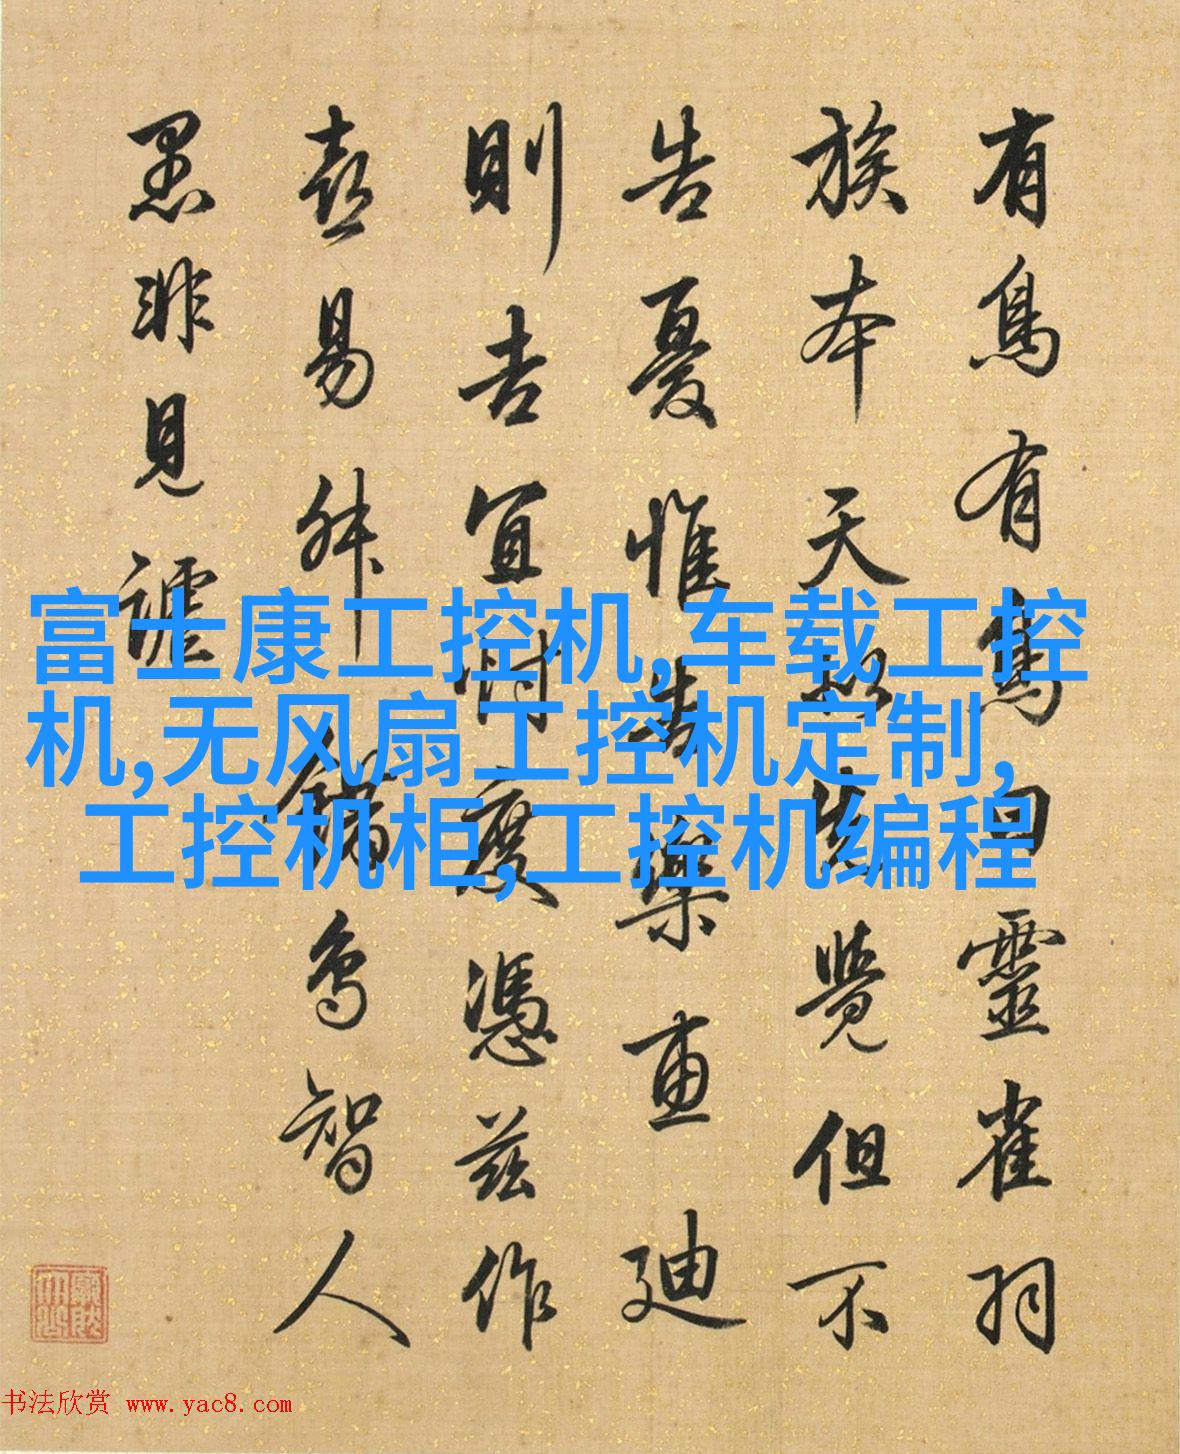 有鳥有鳥曰靈雀羽
族本天覺但不
告憂惟告樂惠迪
則吉宜忖度憑茲作
喜易舛錯鳥智人
愚非見謔
富士康工控机,车载工控
机,无风扇工控机定制,
工控机柜,工控机编程
书法欣赏 www.yac8.com